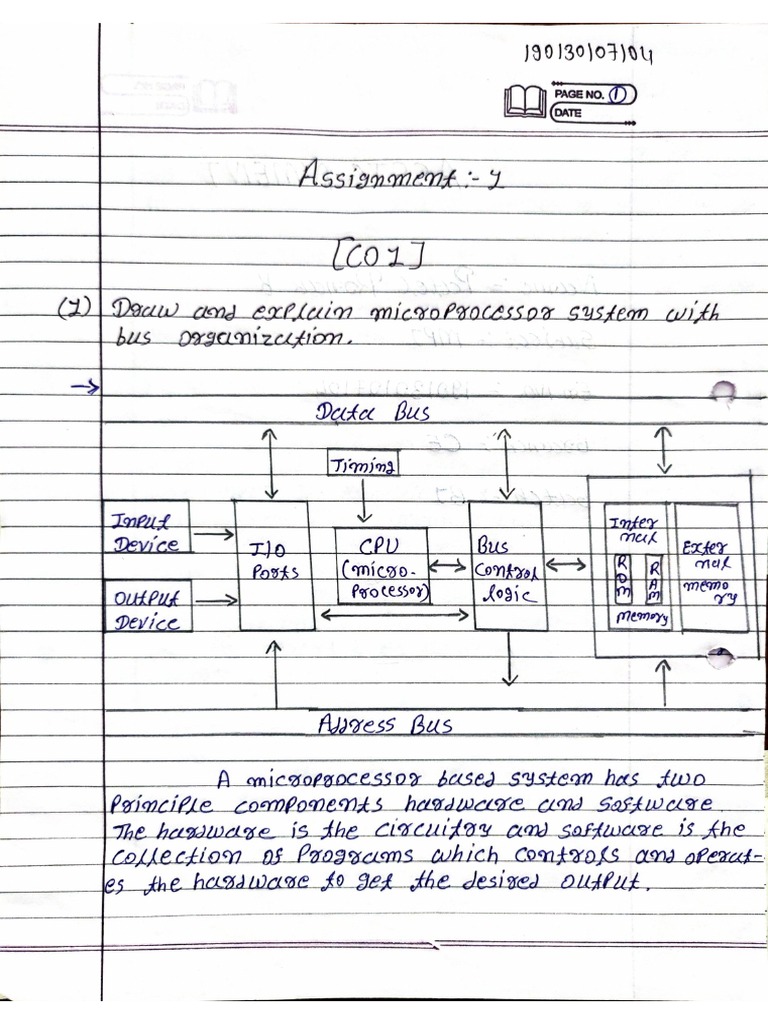 190130107104
PAGE NO. 1
DATE
Assignment :- 1
[CO1]
(1) Draw and explain microprocessor system with
bus organization.
→
Data Bus
Timing
Input
Device
Output
Device
I/O
Ports
CPU
(micro-
Processor)
Bus
control
logic
Inter
nal
ROM
RAM
memory
Exter
nal
memo
ry
Address Bus
A microprocessor based system has two
Principle components hardware and software.
The hardware is the circuitry and software is the
collection of Programs which controls and operat-
es the hardware to get the desired output.